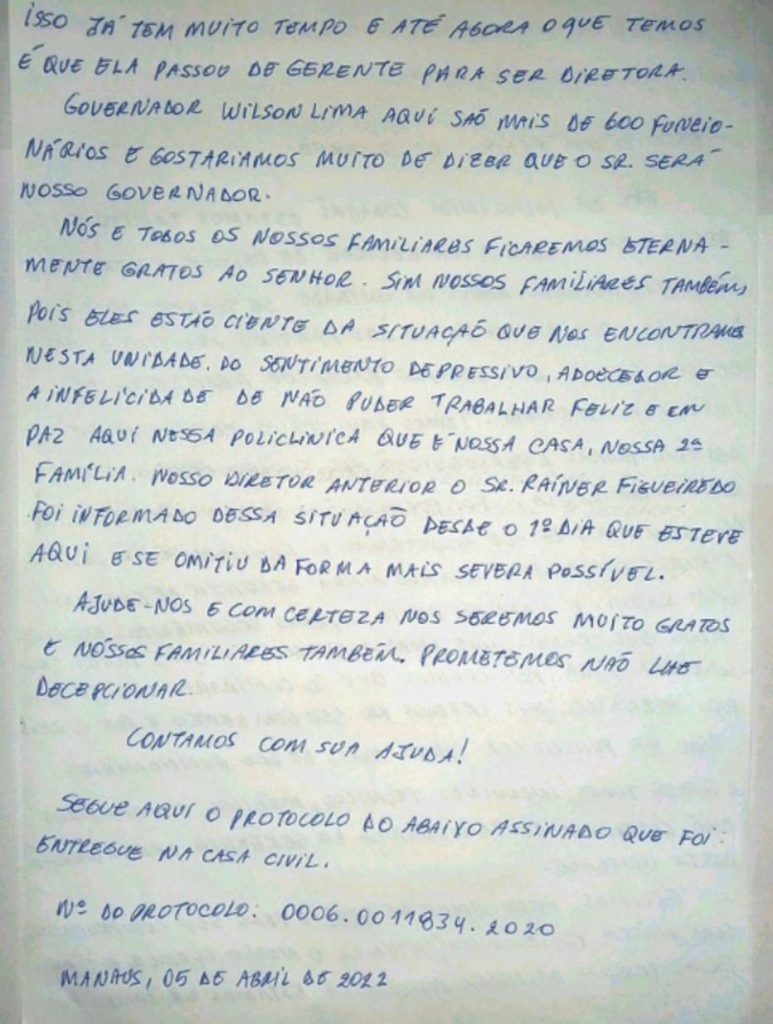 ISSO JÁ TEM MUITO TEMPO E ATÉ AGORA O QUE TEMOS
É QUE ELA PASSOU DE GERENTE PARA SER DIRETORA.
GOVERNADOR WILSON LIMA AQUI SAÕ MAIS DE 600 FUNCIO-
NÁRIOS E GOSTARIAMOS MUITO DE DIZER QUE O SR. SERÁ
NOSSO GOVERNADOR.
NÓS E TODOS OS NOSSOS FAMILIARES FICAREMOS ETERNA-
MENTE GRATOS AO SENHOR. SIM NOSSOS FAMILIARES TAMBÉM,
POIS ELES ESTÃO CIENTE DA SITUAÇÃO QUE NOS ENCONTRAMOS
NESTA UNIDADE. DO SENTIMENTO DEPRESSIVO, ADOECEDOR E
A INFELICIDADE DE NÃO PUDER TRABALHAR FELIZ E EM
PAZ AQUI NESSA POLICLINICA QUE É NOSSA CASA, NOSSA 2ª
FAMÍLIA. NOSSO DIRETOR ANTERIOR O SR. RAINER FIGUEIREDO
FOI INFORMADO DESSA SITUAÇÃO DESDE O 1º DIA QUE ESTEVE
AQUI E SE OMITIU DA FORMA MAIS SEVERA POSSÍVEL.
AJUDE-NOS E COM CERTEZA NOS SEREMOS MUITO GRATOS
E NÓSSOS FAMILIARES TAMBÉM. PROMETEMOS NÃO LHE
DECEPCIONAR.
CONTAMOS COM SUA AJUDA!
SEGUE AQUI O PROTOCOLO DO ABAIXO ASSINADO QUE FOI
ENTREGUE NA CASA CIVIL.
Nº DO PROTOCOLO: 0006.0011834.2020
MANAUS, 05 DE ABRIL DE 2022